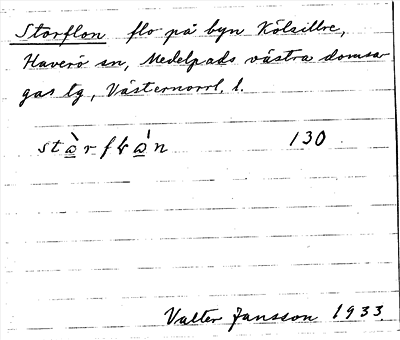 Storflon flo på byn Kölsillre,
Haverö sn, Medelpads västra domsa-
gas tg, Västernorrl. l.
130
Valter Jansson 1933.